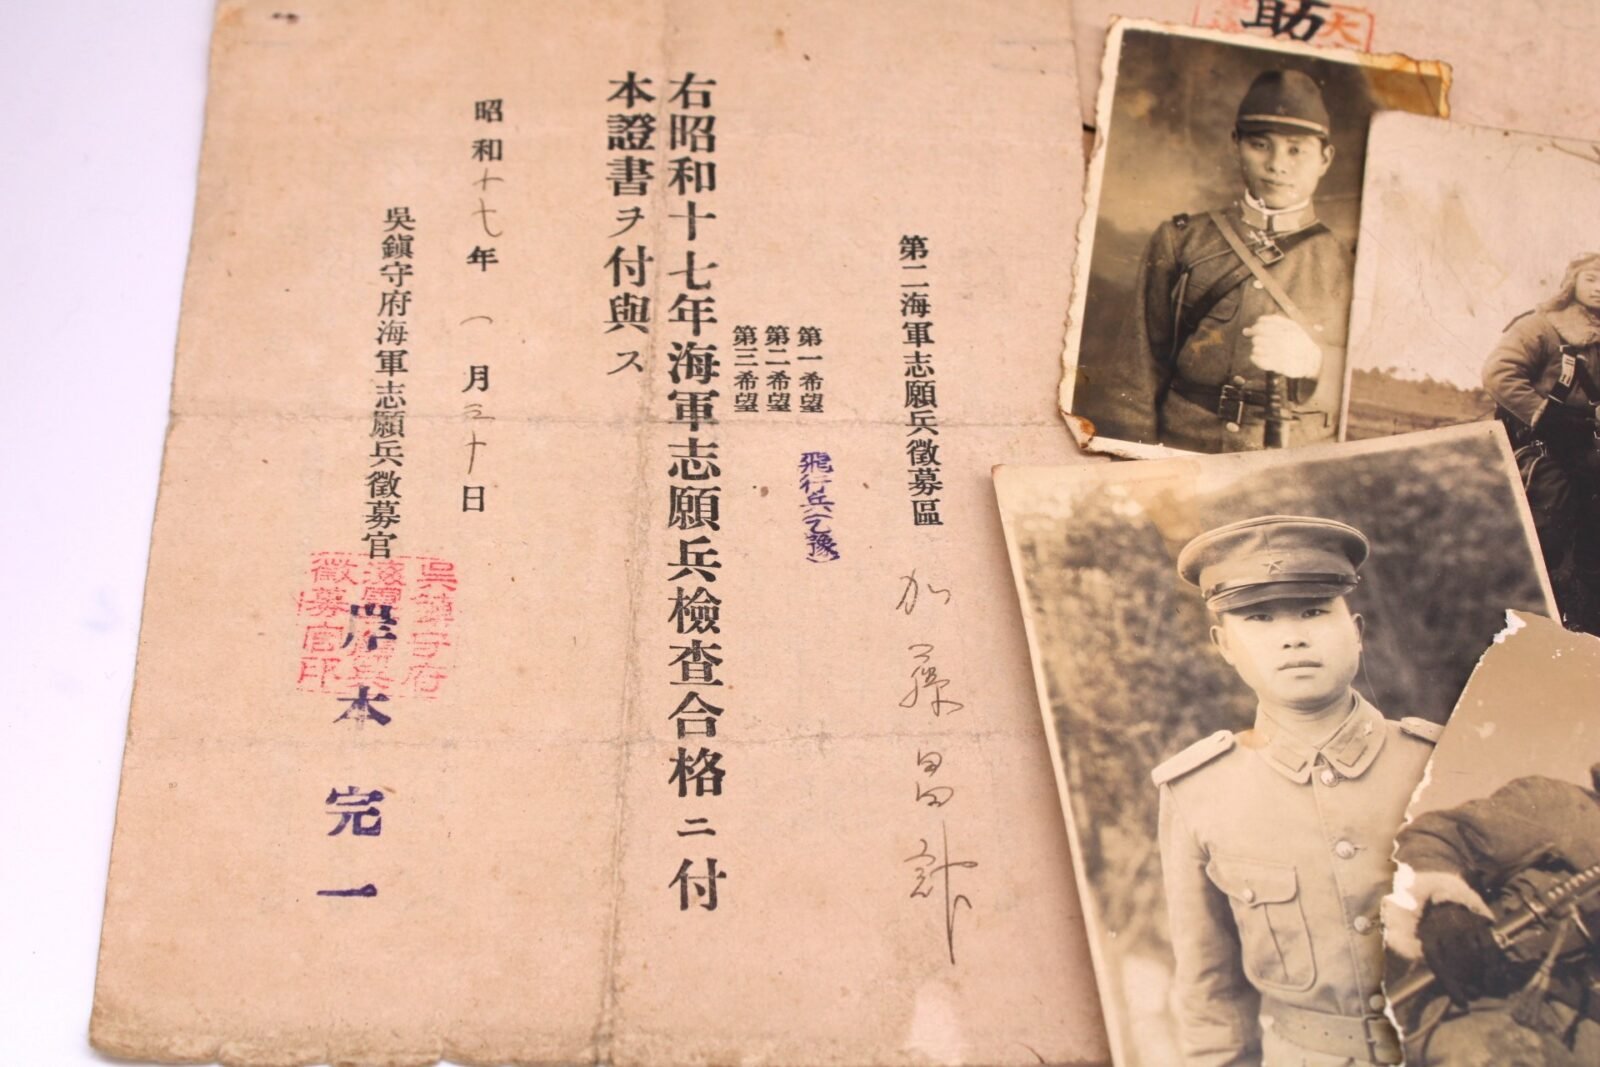 助
第二海軍志願兵徵募區
加藤昌
第一希望 飛行兵(乙豫)
第二希望
第三希望
右昭和十七年海軍志願兵檢查合格ニ付
本證書ヲ付與ス
昭和十七年一月三十日
吳鎮守府海軍志願兵徵募官 岸本完一
吳鎮守府
海軍志願兵
徵募官印